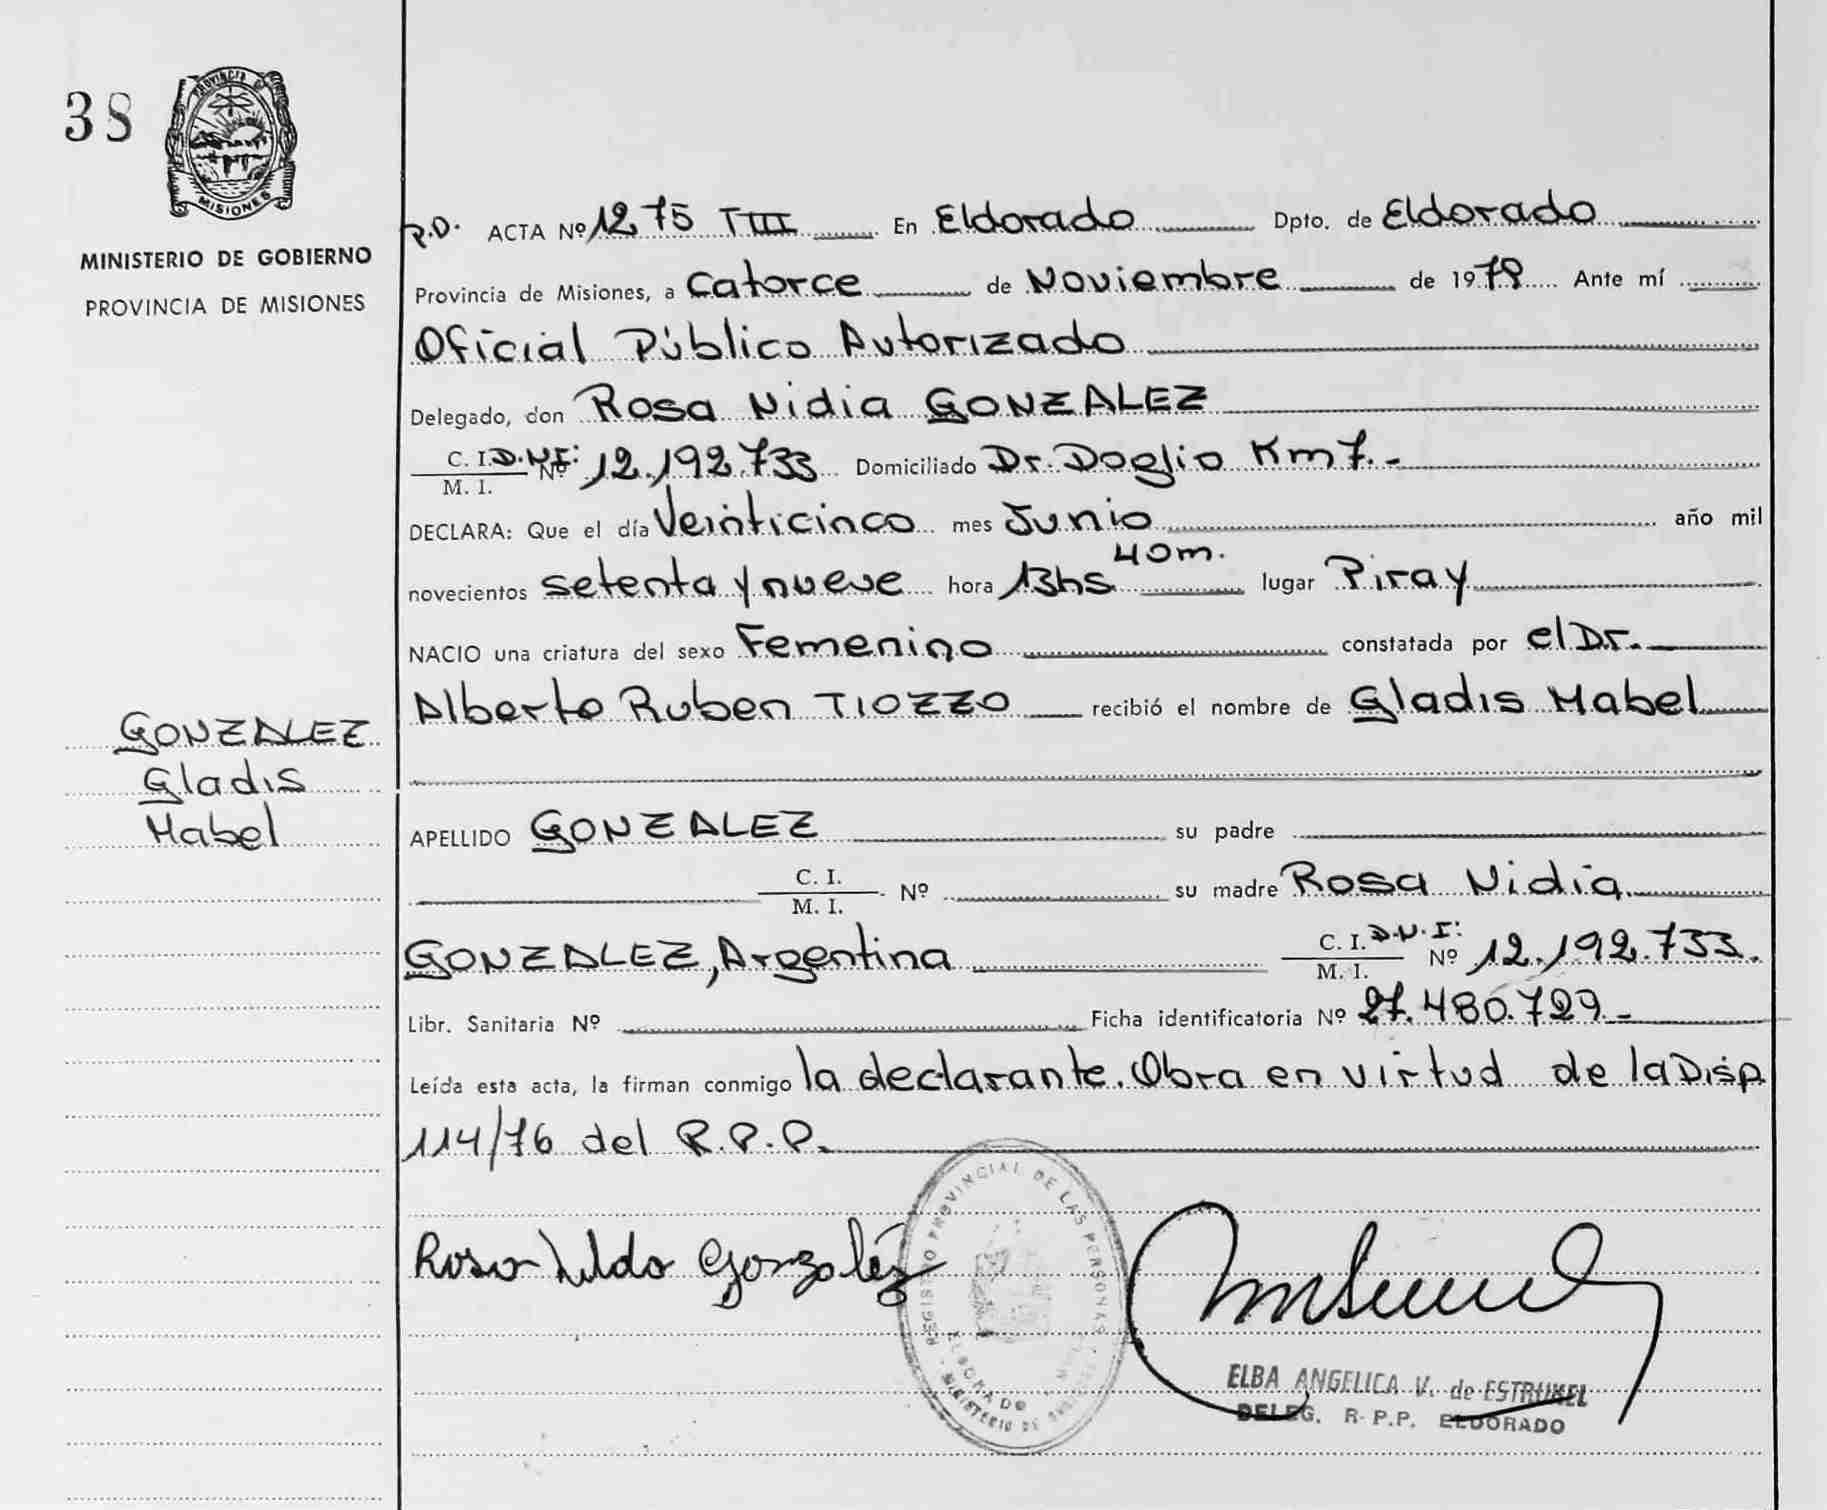 38
PROVINCIA D
MISIONES
MINISTERIO DE GOBIERNO
PROVINCIA DE MISIONES
R.D. ACTA Nº 1275 TIII En Eldorado Dpto. de Eldorado
Provincia de Misiones, a Catorce de Noviembre de 1979 Ante mí
Oficial Público Autorizado
Delegado, don Rosa Nidia GONZALEZ
C. I. D.N.I: Nº 12.192.733 Domiciliado Dr. Doglio Km 7.-
M. I.
DECLARA: Que el día Veinticinco mes Junio año mil
novecientos setenta y nueve hora 13hs 40m. lugar Piray
NACIO una criatura del sexo Femenino constatada por el Dr.
Alberto Ruben TIOZZO recibió el nombre de Gladis Mabel
GONZALEZ
Gladis
Mabel
APELLIDO GONZALEZ su padre
C. I. Nº su madre Rosa Nidia
M. I.
GONZALEZ, Argentina C. I. D.N.I: Nº 12.192.733.
M. I.
Libr. Sanitaria Nº Ficha identificatoria Nº 27.480.729.-
Leída esta acta, la firman conmigo la declarante. Obra en virtud de la Disp.
114/76 del R.P.P.
Rosa Gonzaléz
REGISTRO PROVINCIAL DE LAS PERSONAS
ELDORADO
MINISTERIO DE
ELBA ANGELICA V. de ESTRUKEL
DELEG. R.P.P. ELDORADO